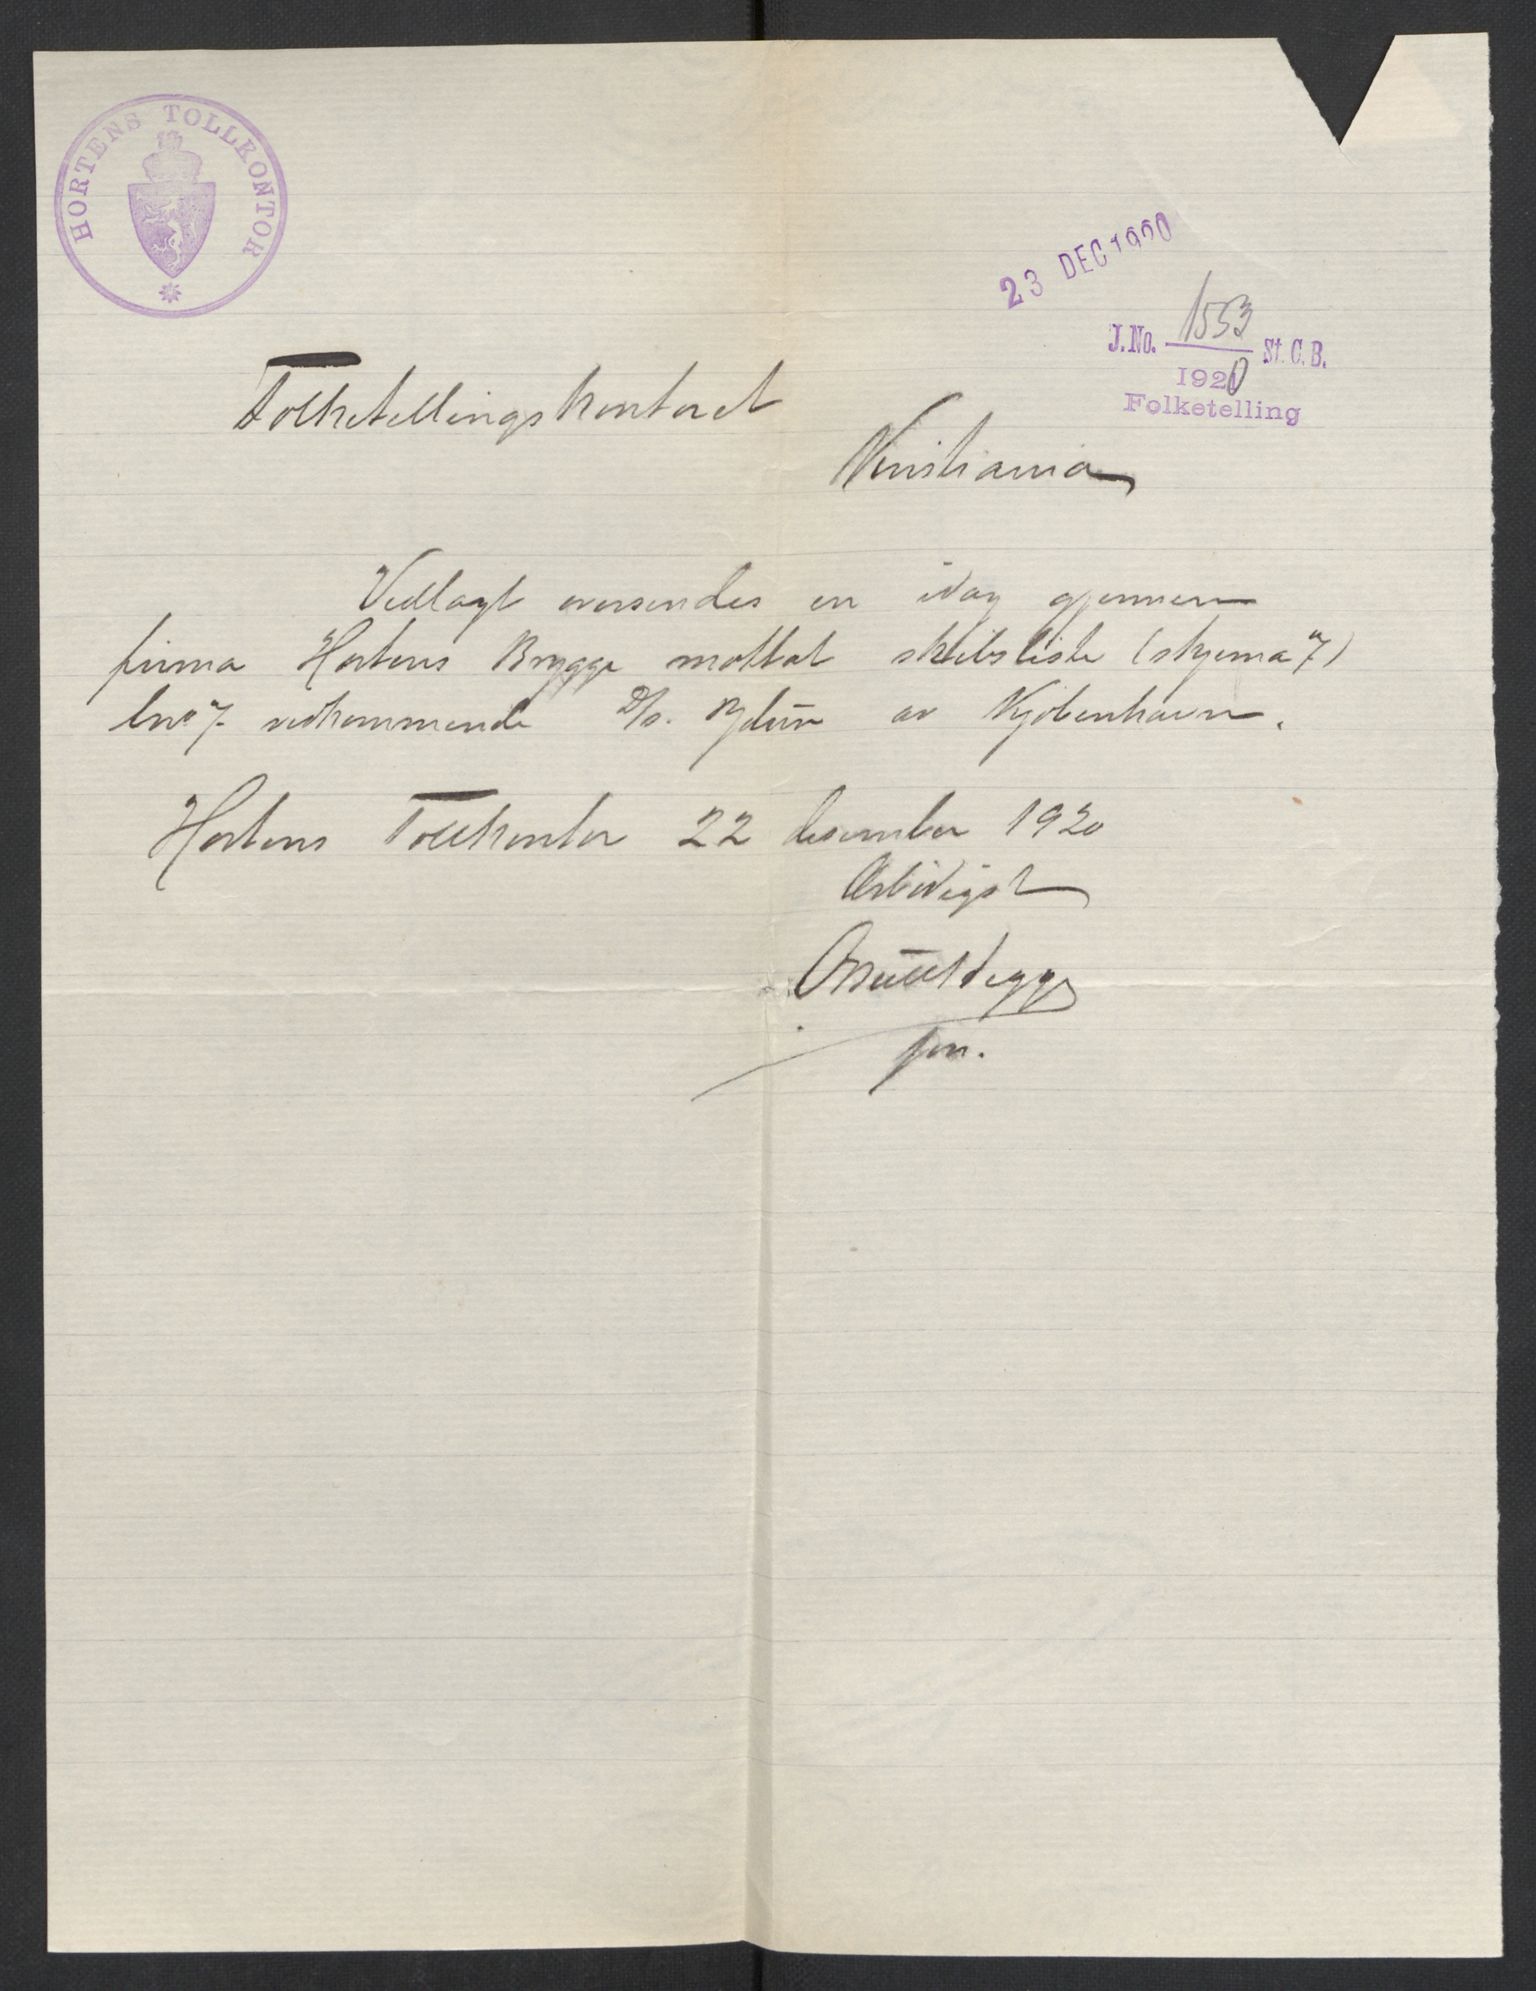 HORTENS TOLLKONTOR
23 DEC 1920
J.No. 1553 St. C. B.
1920
Folketelling
Folketellingskontoret
Kristiania
Vedlagt oversendes en idag gjennem
firma Hortens Brygge mottat skibsliste (skjema 7)
lnr 7 vedkommende D/s. av Kjøbenhavn.
Hortens Tollkontor 22 desember 1920
Ærbödigst